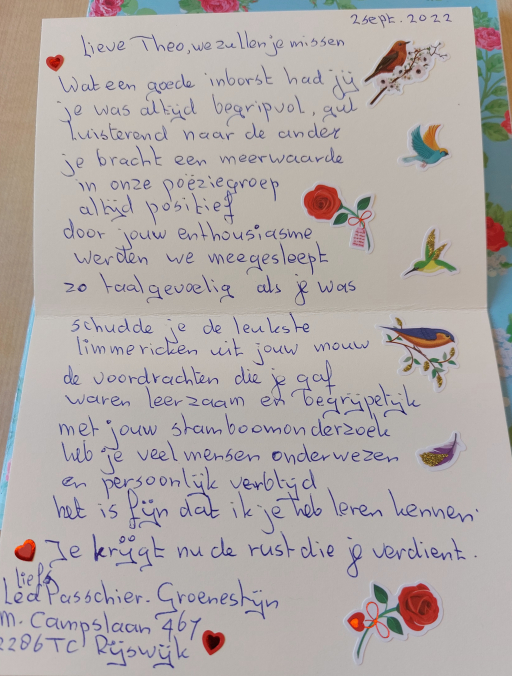 2 sept. 2022
Lieve Theo, we zullen je missen
Wat een goede inborst had jij
je was altijd begripvol, gul
luisterend naar de ander
je bracht een meerwaarde
in onze poëziegroep
altijd positief
door jouw enthousiasme
werden we meegesleept
zo taalgevoelig als je was
schudde je de leukste
limmericken uit jouw mouw
de voordrachten die je gaf
waren leerzaam en begrijpelijk
met jouw stamboomonderzoek
heb je veel mensen onderwezen
en persoonlijk verblijd
het is fijn dat ik je heb leren kennen.
Je krijgt nu de rust die je verdient.
liefs
Lea Passchier-Groenestijn
m. Campslaan 467
2286TC Rijswijk